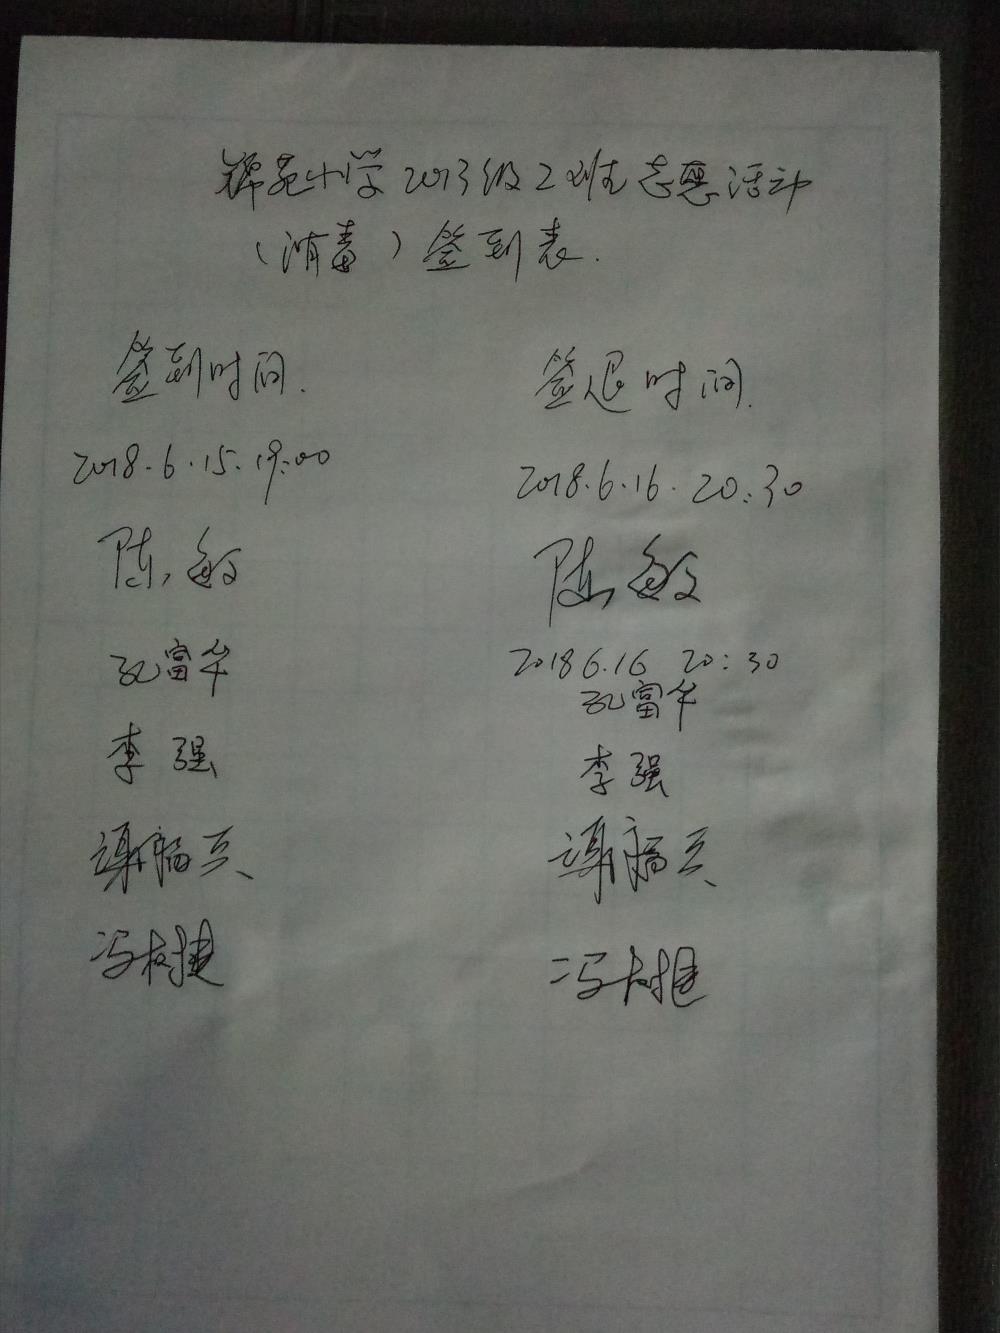 锦苑小学2013级2班志愿活动
（消毒）签到表.
签到时间.
签退时间.
2018.6.15.19:00
2018.6.16.20:30
陈敏
陈敏
孔富华
2018 6.16 20:30
孔富华
李强
李强
谢福兵
谢福兵
冯树捷
冯树捷